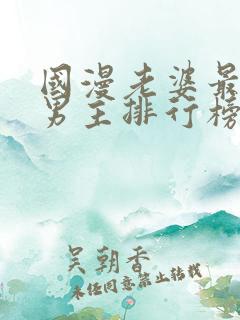 國漫老婆最
男主排行榜
吴朝香
未经同意禁止转载